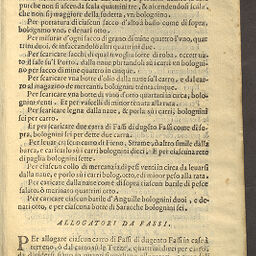 purche non si ascenda scala quattrini tre, & ascendendosi scala,
che non sij maggiore della sudetta, vn bolognino.
Per portatura di ciascun sacco d'alboà ballo come di sopra,
bolognino vno, e denari otto.
Per misurar d'ogni sacco di grano di mine quattro l'vno, quat
trini duoi, & infaccandolo altri quattrini due.
Per scaricare sacchi di qual si voglia sorte di roba, eccettua
to il sale su'l Porto, dalla naue pur standoui sù i carri vn bologni-
no per sacco di mine quattro in cinque.
Per scaricare vna botte d'olio dalla naue su'l carro, e dal car
ro al magazeno de mercanti, bolognini quattro.
Per scaricare vna botte di vino d'otto quartarie in circa, bolog
nini venti. Et per vascelli di minor tenuta alla rata.
Per scaricare legne dalla naue, & porle sù i carri, bolognini
sei per carro.
Et per scaricare due carra di Fassi di dugēto Fassi come di so-
pra, bolognini sei per dette due carra.
Per leuar ciascun carro di Fieno, Strame, & altro simile dalla
barca, e caricarlo sù i carri bolognini dieci. E per ciascuna rete
di paglia bolognini sette.
Per ciascun collo di mercantia di pesi venti in circa da leuarsi
dalla naue, e porlo sù i carri bolog. otto, e di minor peso alla rata.
Per caricare dalla naue come di sopra ciascun barile di pesce
salato, ò marinato bolognini otto.
Per caricare ciascun barile d'Anguille bolognini duoi, e de-
nari otto, e per ciascuna botte di Saracche bolognini sei.
ALLOGATORI DA FASSI.
PEr allogare ciascun carro di Fassi di dugento Fassi in casa à
terreno, ò dal